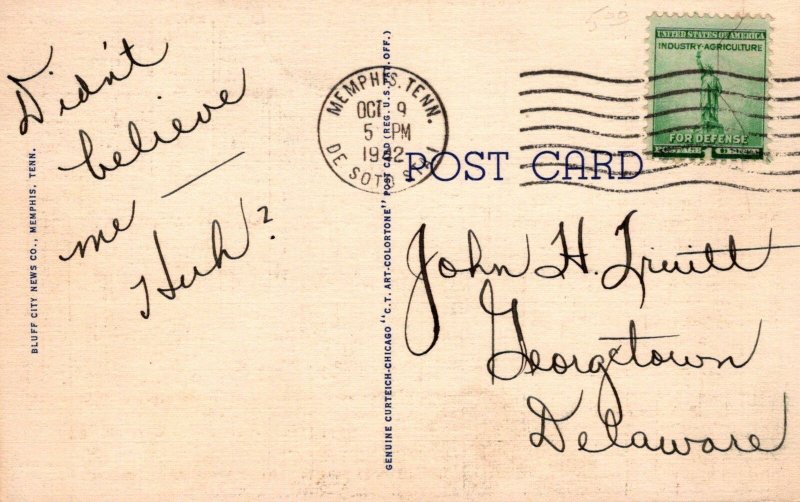 Didn't
believe
me —
Huh?
BLUFF CITY NEWS CO., MEMPHIS, TENN.
GENUINE CURTEICH-CHICAGO "C.T. ART-COLORTONE" POST CARD (REG. U.S. PAT. OFF.)
MEMPHIS, TENN.
OCT 9
5 PM
1942
DE SOTO STA.
POST CARD
UNITED STATES OF AMERICA
INDUSTRY·AGRICULTURE
FOR DEFENSE
POSTAGE 1 CENT
John H. Truitt
Georgetown
Delaware